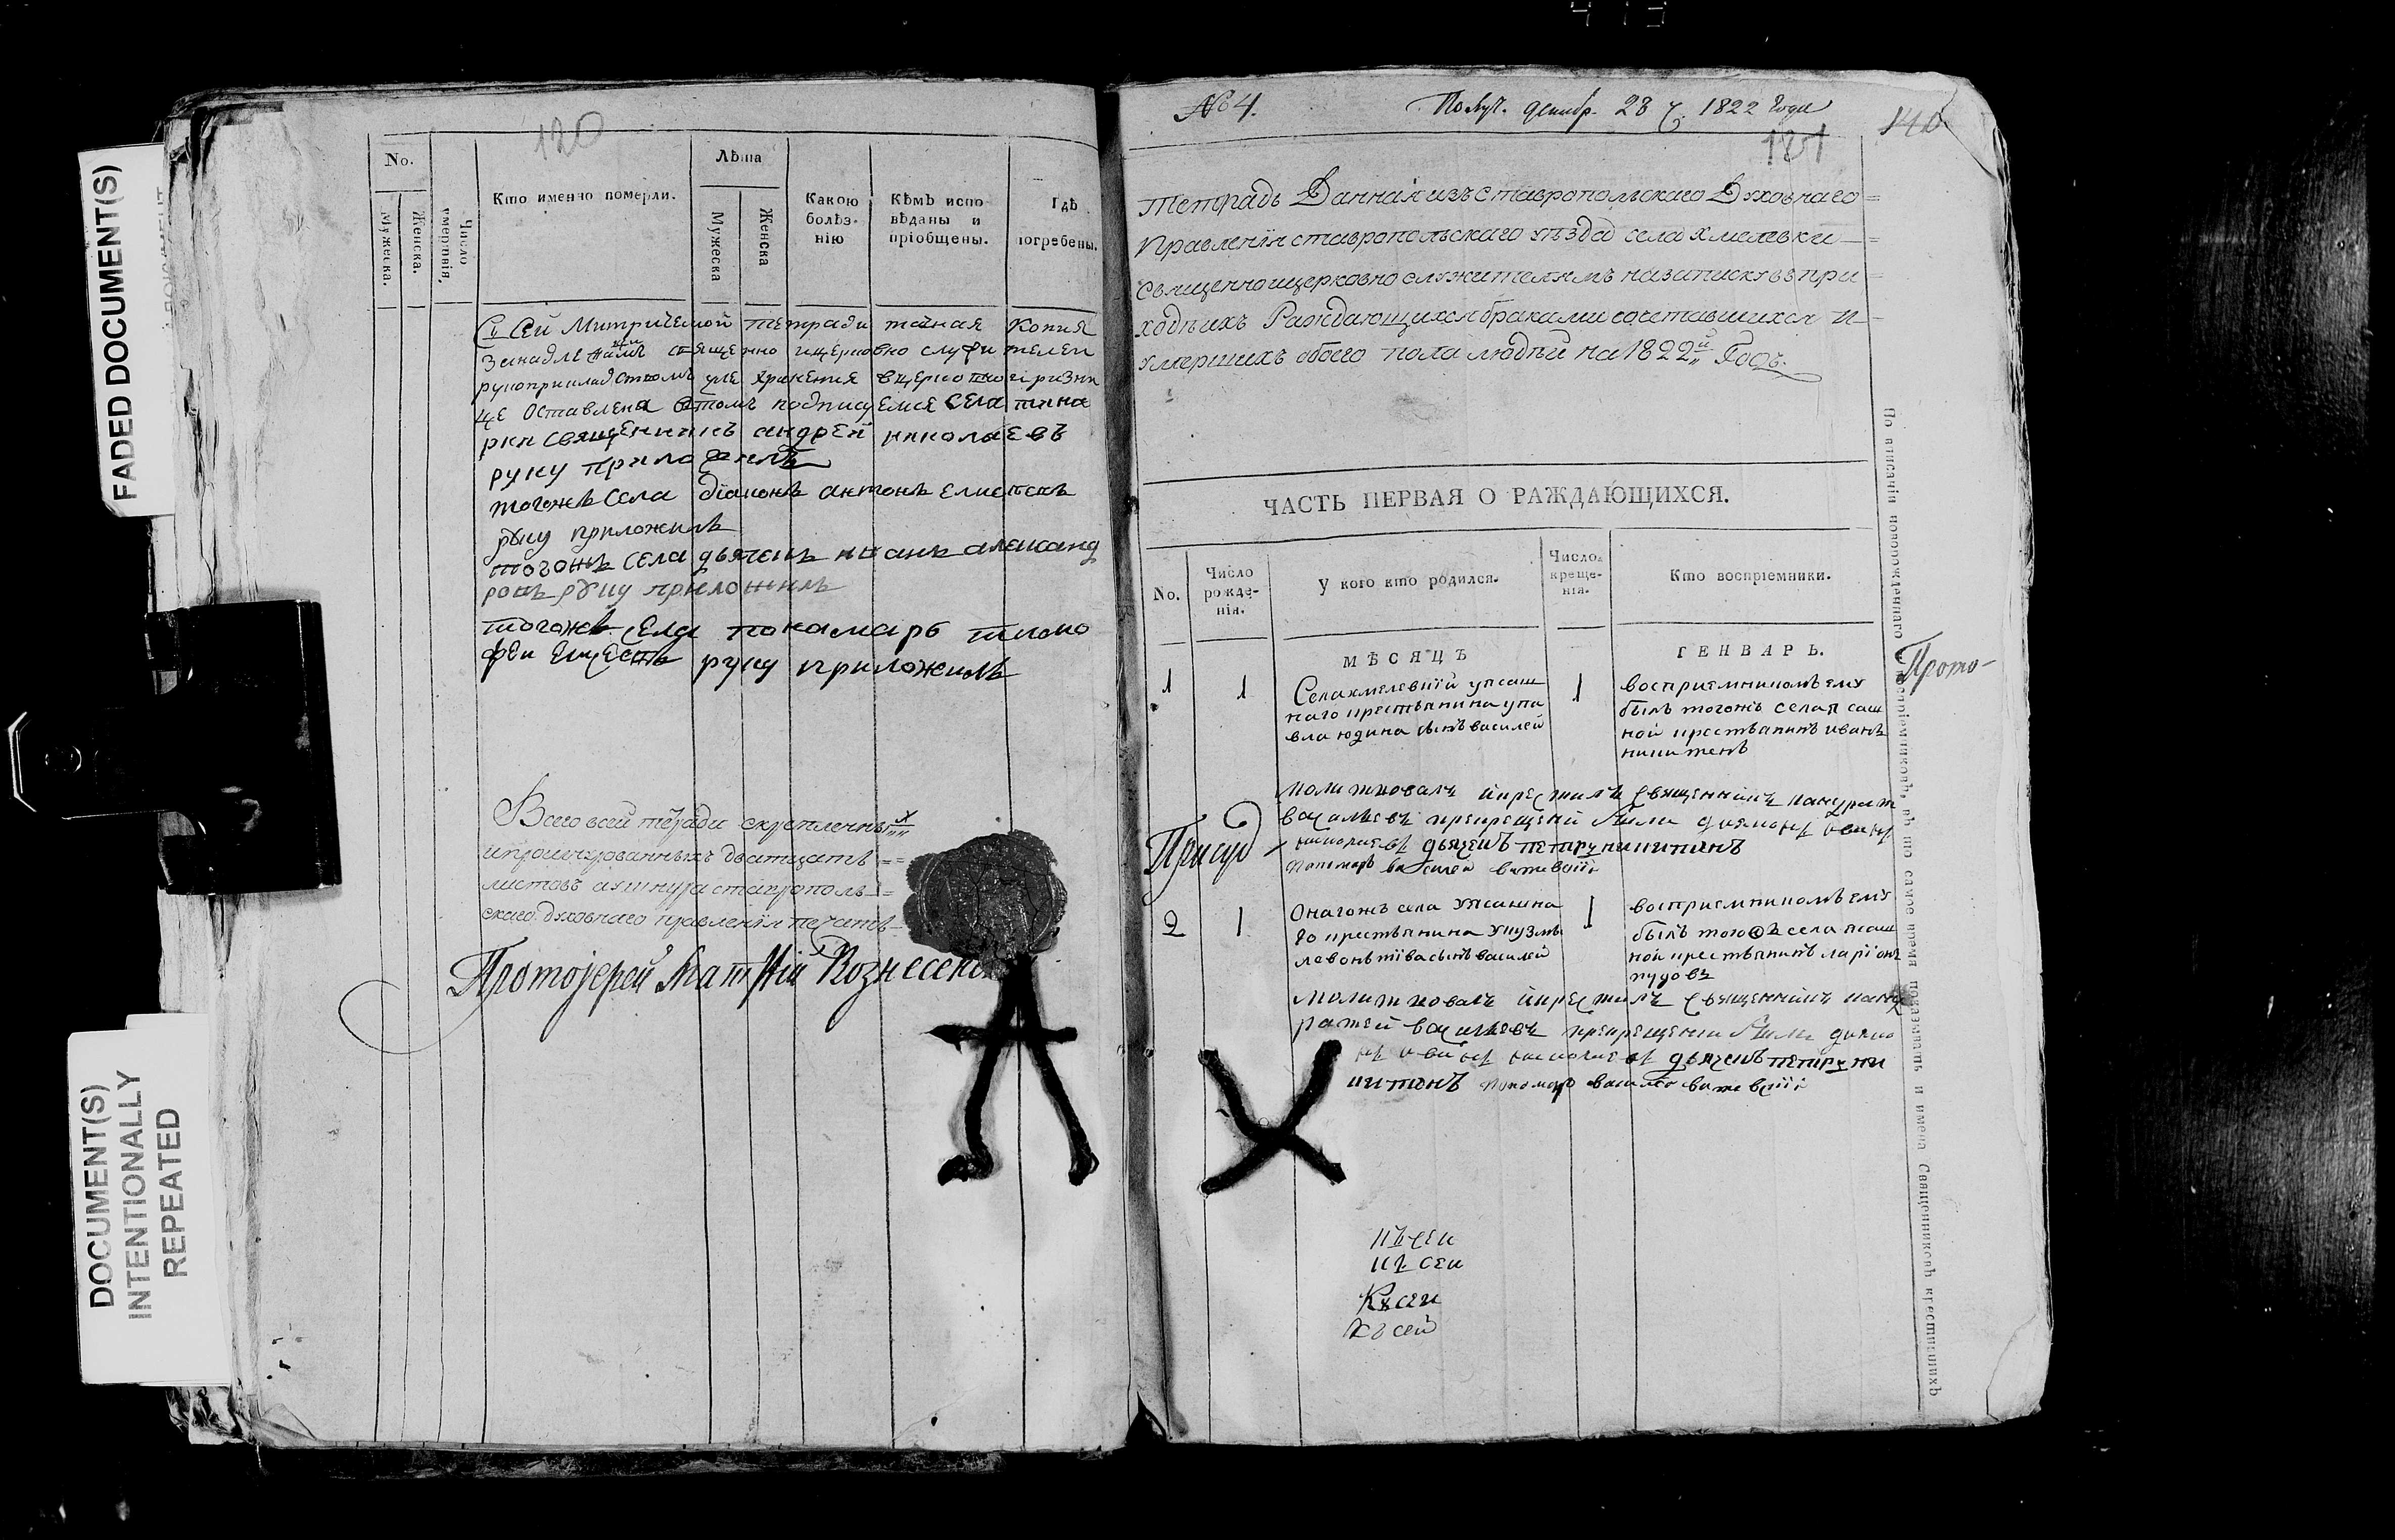 FADED DOCUMENT(S)
DOCUMENT(S)
INTENTIONALLY
REPEATED
120
No.
Мужеска.
Женска.
Число умертвія.
Кто именно померли.
Лѣта
Мужеска
Женска
Какою болѣз-нію
Кѣмъ испо-вѣданы и пріобщены.
Гдѣ погребены.
Съ сей Митрической тетради точная копия
за надлежащимъ священно ицерковно служителей
рукоприкладствомъ для хранения вцерковной ризни
це оставлена втомъ подписуемся села
священникъ андрей николаевъ
руку приложилъ
тогожъ села діаконъ антонъ
руку приложилъ
тогожъ села дьячекъ иванъ александ
ровъ руку приложилъ
тогожъ села понамарь тимо
фей руку приложилъ
Всего всей тетради скрепленныхъ
ипрошнурованныхъ дватцать
листовъ ашнура ставрополь
скаго духовнаго правленія печать
Протоіерей Матѳій Вознесенской
№ 4.
Получ. декабр. 28 ч. 1822 Года
121
140
Тетрадь Данная изъ Ставропольскаго Духовнаго
Правленія ставропольскаго уѣзда села хмелевки
Священноицерковнослужителямъ назаписку въ при
ходѣ ихъ Раждающихся браками сочетавшихся и
умершихъ обоего пола людей на 1822й Годъ.
ЧАСТЬ ПЕРВАЯ О РАЖДАЮЩИХСЯ.
No.
Число рожде-нія.
У кого кто родился.
Число креще-нія.
Кто воспріемники.
МѢСЯЦЪ
ГЕНВАРЬ.
1
1
Села хмелевкий упсаш
наго крестьянина упа
вла юдина сынъ василей
1
восприемникомъ ему
былъ тогожъ села псаш
ной крестьянинъ иванъ
никитенъ
молитвовалъ икрестилъ священникъ панкрат
васильевъ прикрещении были
дьячекъ петръ никитинъ
пономарь василей
2
1
Онагожъ села упсашна
го крестьянина укузмы
левонътива сынъ василей
1
восприемникомъ ему
былъ тогожъ села псаш
ной крестьянинъ ларіонъ
пудовъ
молитвовалъ икрестилъ священникъ панк
ратей васильевъ прикрещении были диако
дьячекъ петръ ни
китинъ пономарь василей
Прото-
Присуд-
Къ сей
Къ сей
Къ сей
Къ сей
По вписаніи новорожденнаго и воспріемниковъ, въ то самое время показывать и имена Священниковъ крестившихъ